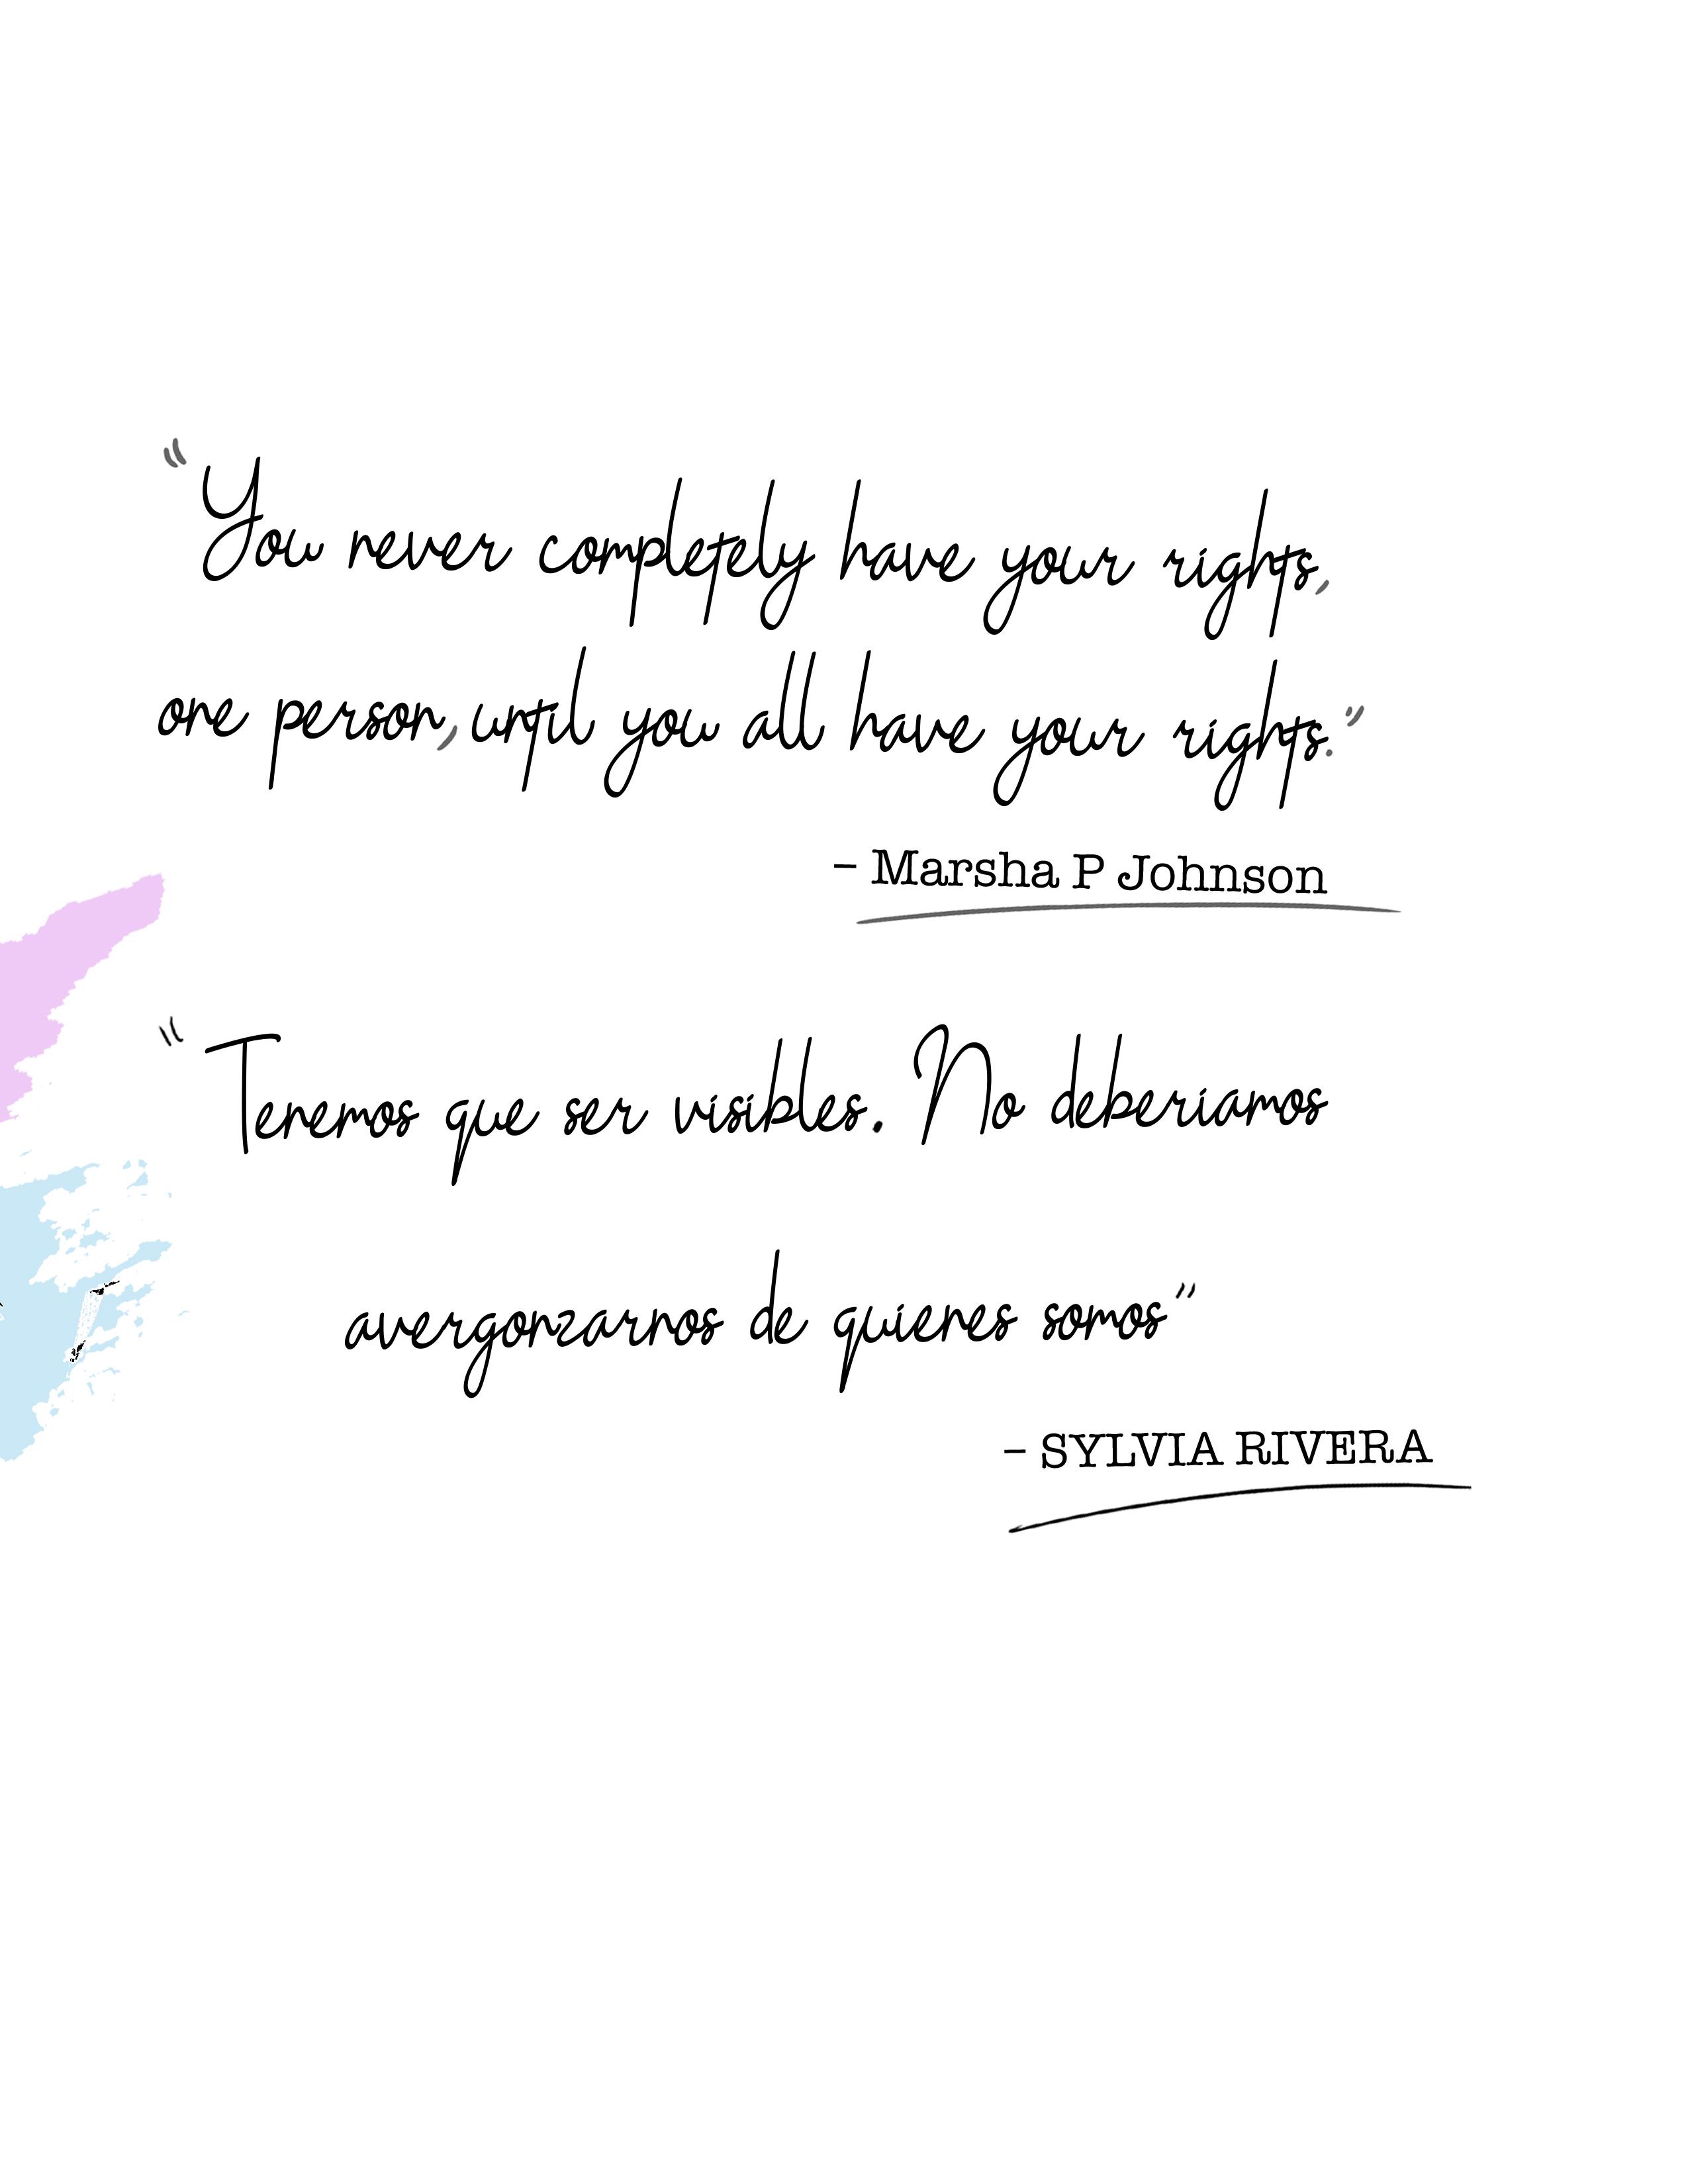 “You never completely have your rights,
one person, until you all have your rights.”
– Marsha P Johnson
“Tenemos que ser visibles. No deberiamos
avergonzarnos de quienes somos”
– SYLVIA RIVERA